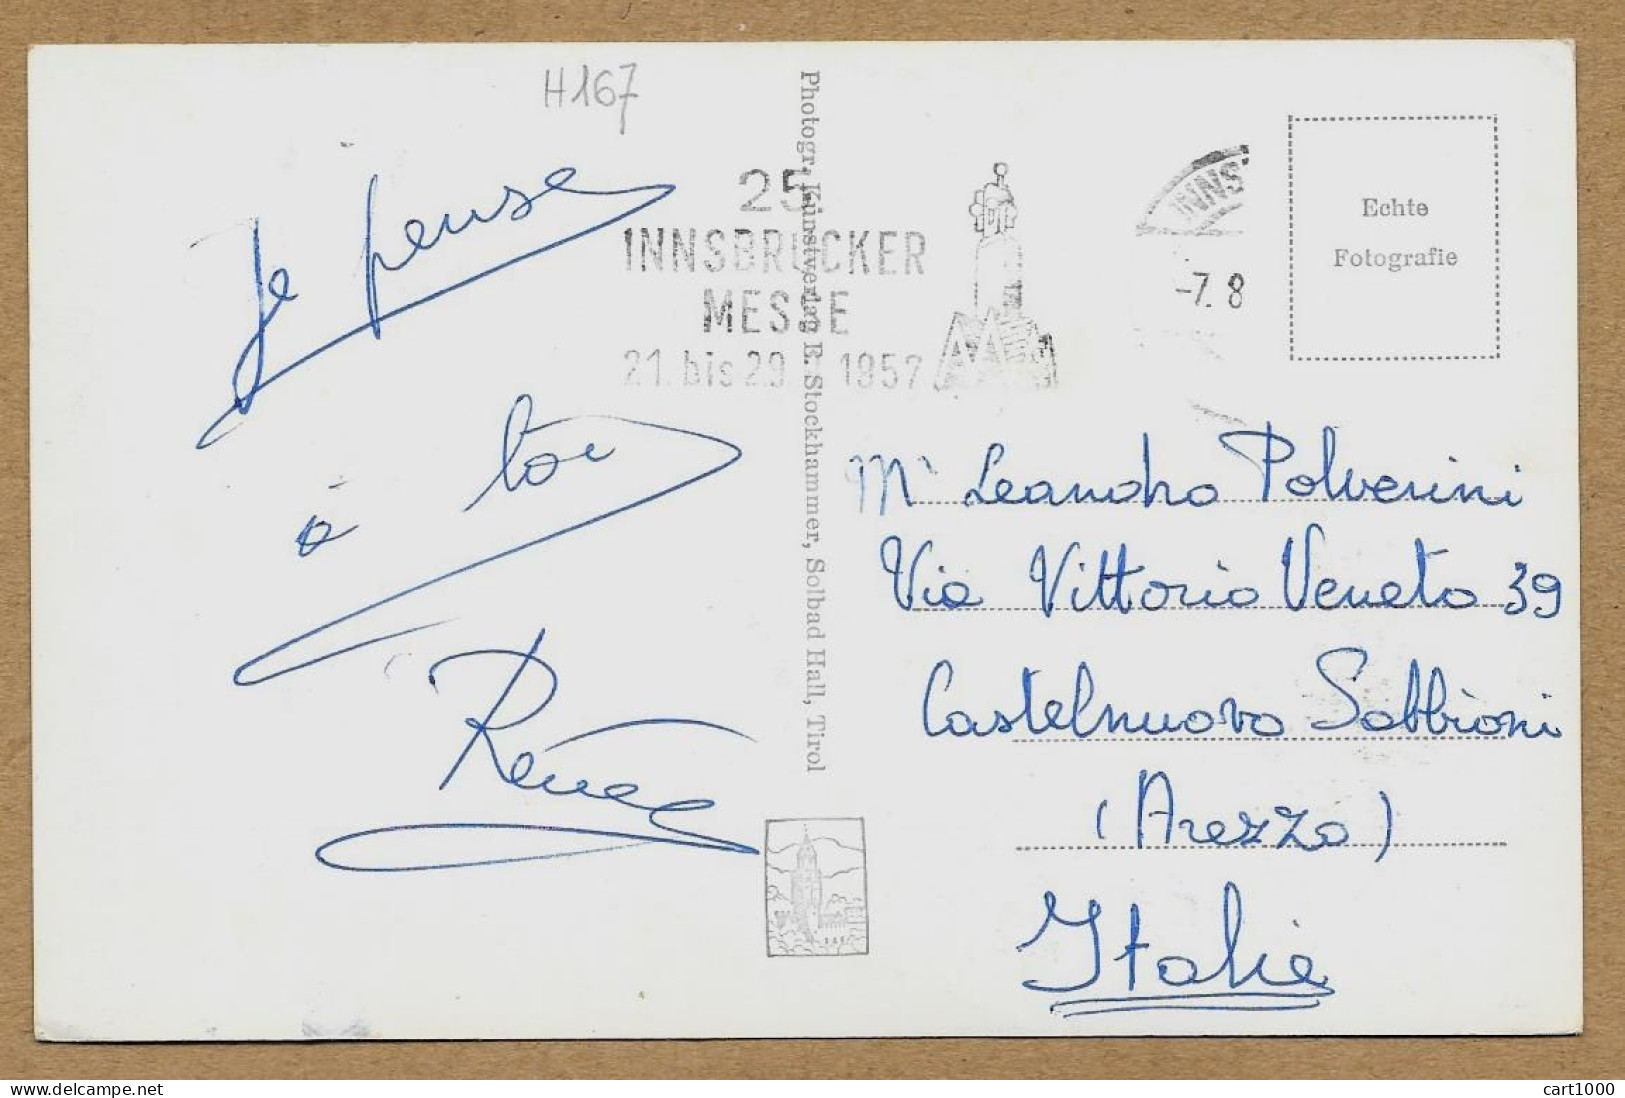 H167
Je pense
à toi
Renée
Photogr. Kunstverlag E. Stockhammer, Solbad Hall, Tirol
25
INNSBRUCKER
MESSE
21. bis 29. 1957
INNS
-7. 8
Echte
Fotografie
Mr Leandro Polverini
Via Vittorio Veneto 39
Castelnuovo Sabbioni
(Arezzo)
Italie
www.delcampe.net
cart1000